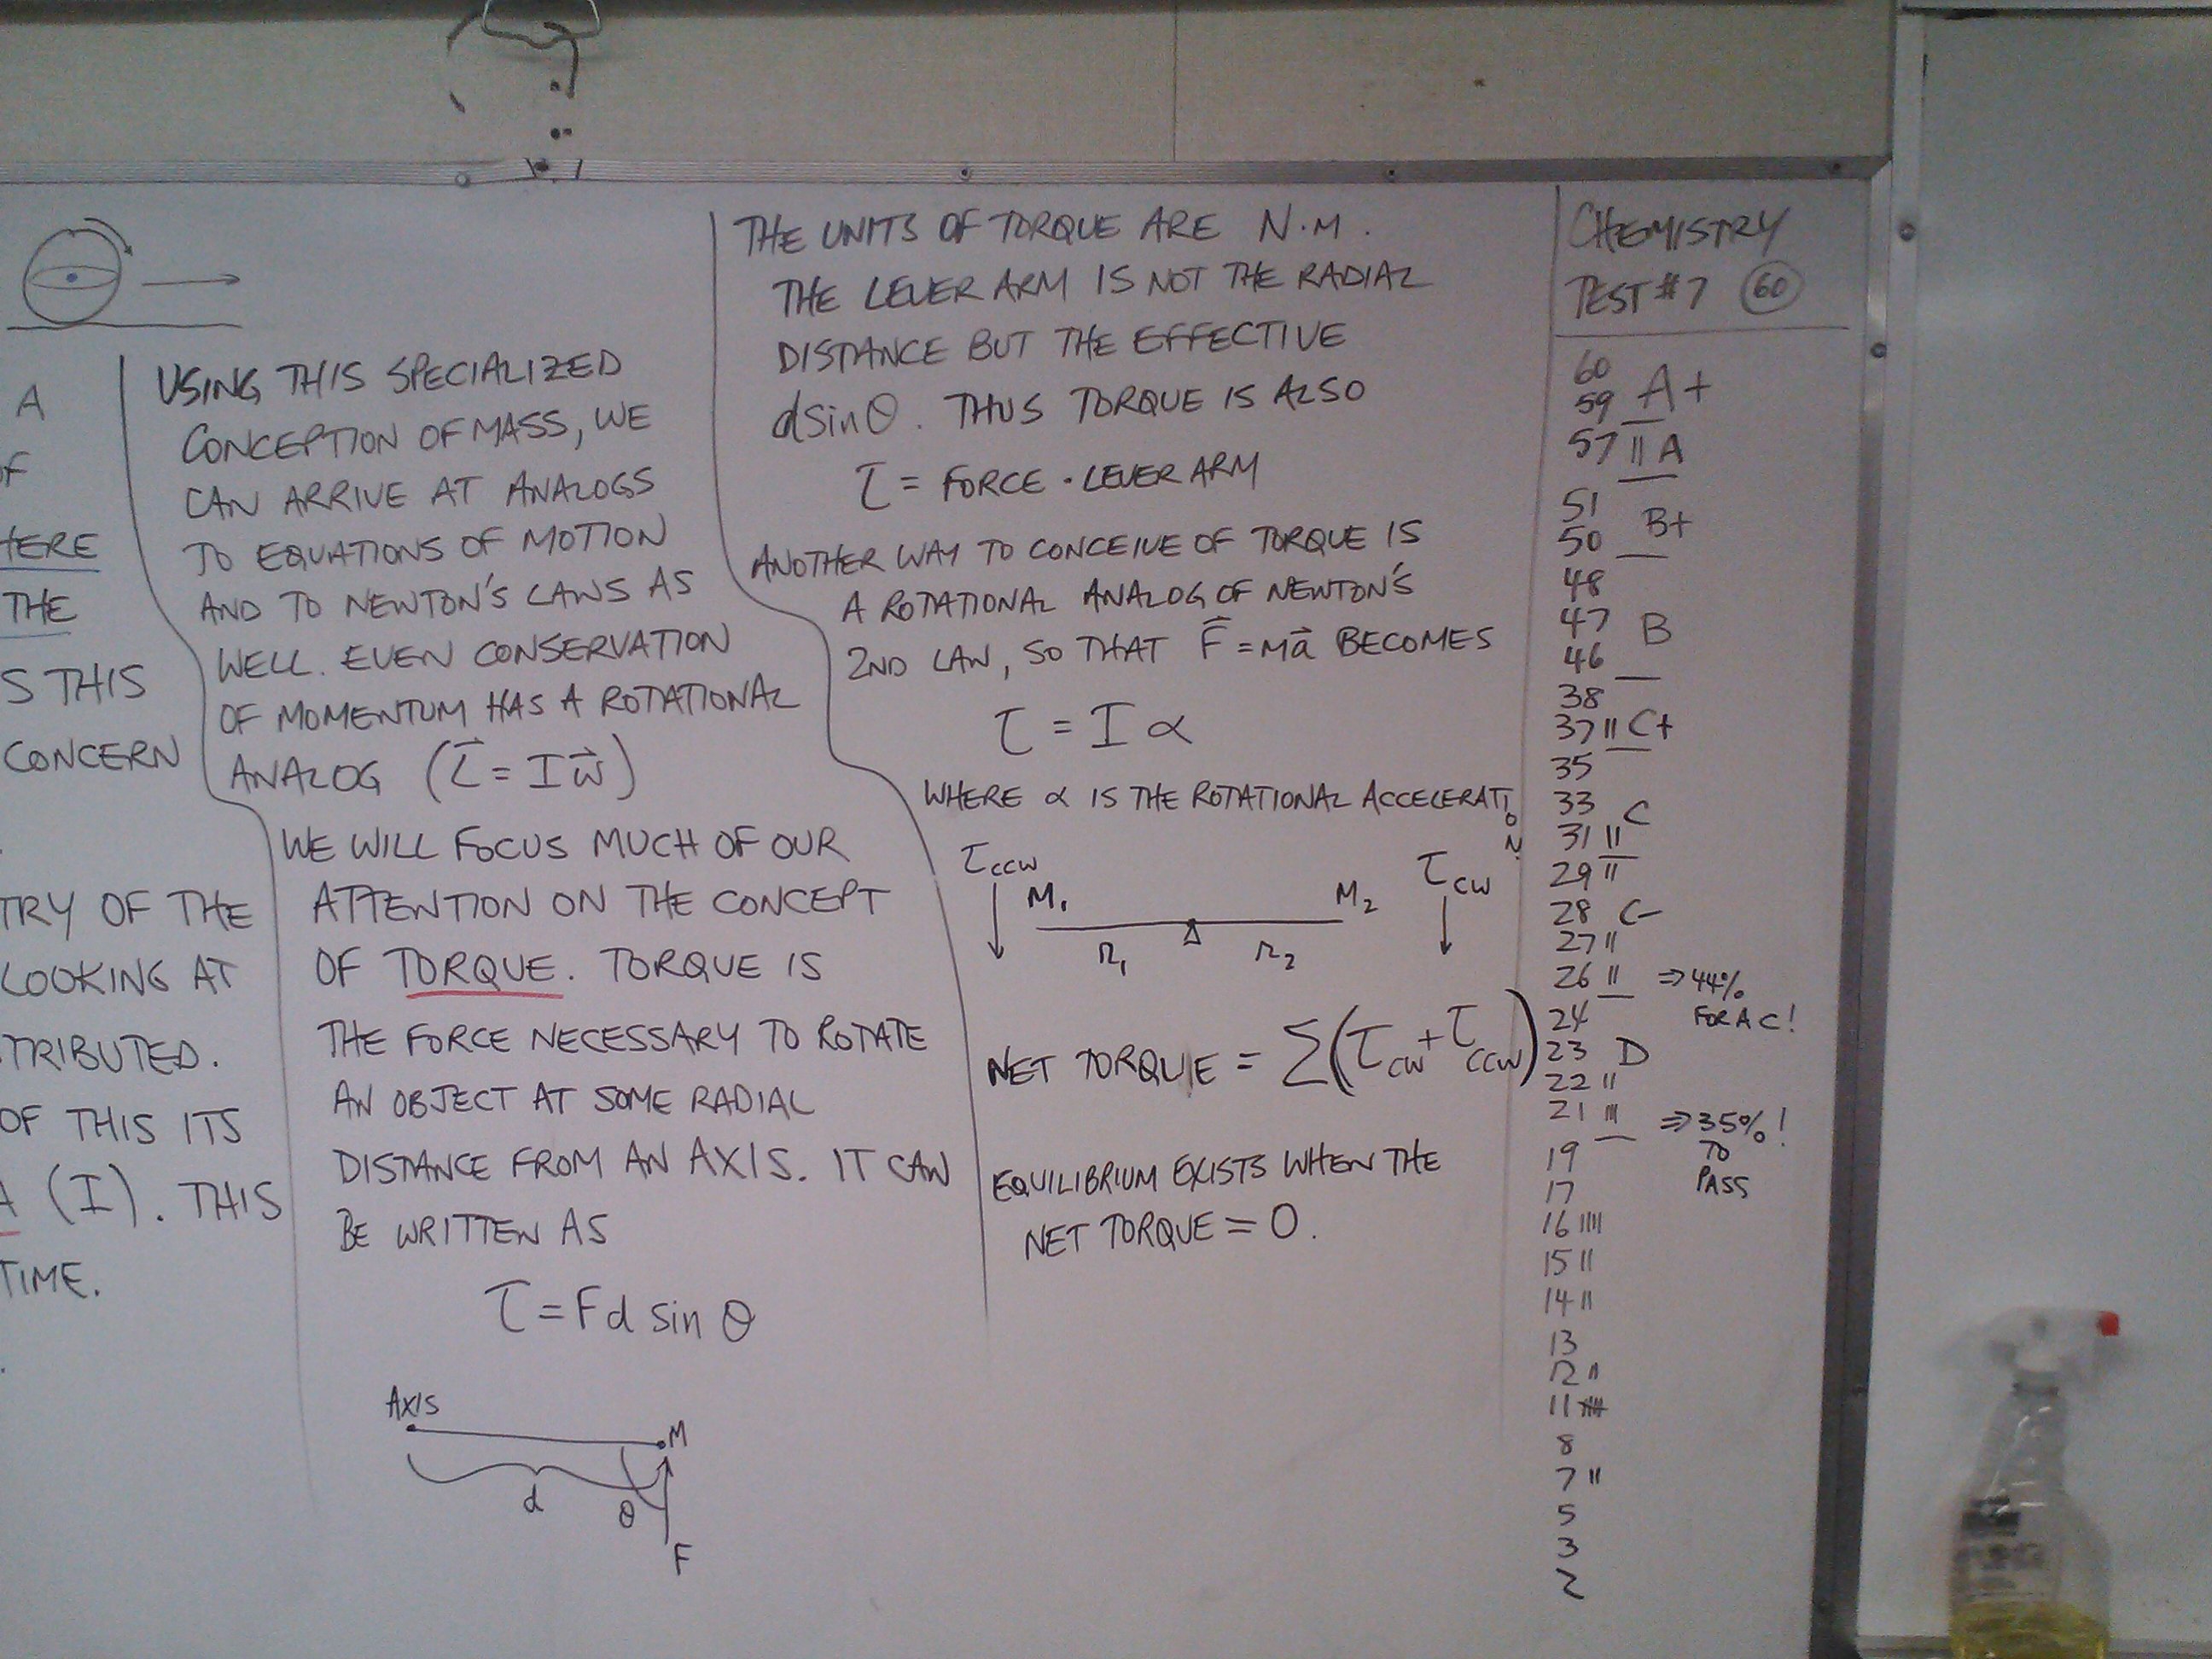 A
OF
HERE
THE
S THIS
CONCERN
TRY OF THE
LOOKING AT
TRIBUTED.
OF THIS ITS
A (I). THIS
TIME.
USING THIS SPECIALIZED
CONCEPTION OF MASS, WE
CAN ARRIVE AT ANALOGS
TO EQUATIONS OF MOTION
AND TO NEWTON'S LAWS AS
WELL. EVEN CONSERVATION
OF MOMENTUM HAS A ROTATIONAL
ANALOG (L⃗ = I ω⃗)
WE WILL FOCUS MUCH OF OUR
ATTENTION ON THE CONCEPT
OF TORQUE. TORQUE IS
THE FORCE NECESSARY TO ROTATE
AN OBJECT AT SOME RADIAL
DISTANCE FROM AN AXIS. IT CAN
BE WRITTEN AS
τ = Fd sin θ
AXIS
M
d
θ
F
THE UNITS OF TORQUE ARE N·M.
THE LEVER ARM IS NOT THE RADIAL
DISTANCE BUT THE EFFECTIVE
dsinθ. THUS TORQUE IS ALSO
τ = FORCE · LEVER ARM
ANOTHER WAY TO CONCEIVE OF TORQUE IS
A ROTATIONAL ANALOG OF NEWTON'S
2ND LAW, SO THAT F⃗ = ma⃗ BECOMES
τ = I α
WHERE α IS THE ROTATIONAL ACCELERATION.
τccw M₁ M₂ τcw
r₁ r₂
NET TORQUE = Σ(τcw + τccw)
EQUILIBRIUM EXISTS WHEN THE
NET TORQUE = 0.
CHEMISTRY
TEST #7 60
60
59 A+
57 || A
51
50 B+
48
47 B
46
38
37 || C+
35
33 C
31 ||
29 ||
28 C-
27 ||
26 || ⇒ 44%
FOR A C!
24
23 D
22 ||
21 ||| ⇒ 35%!
TO
PASS
19
17
16 ||||
15 ||
14 ||
13
12 ||
11 ||||
8
7 ||
5
3
2